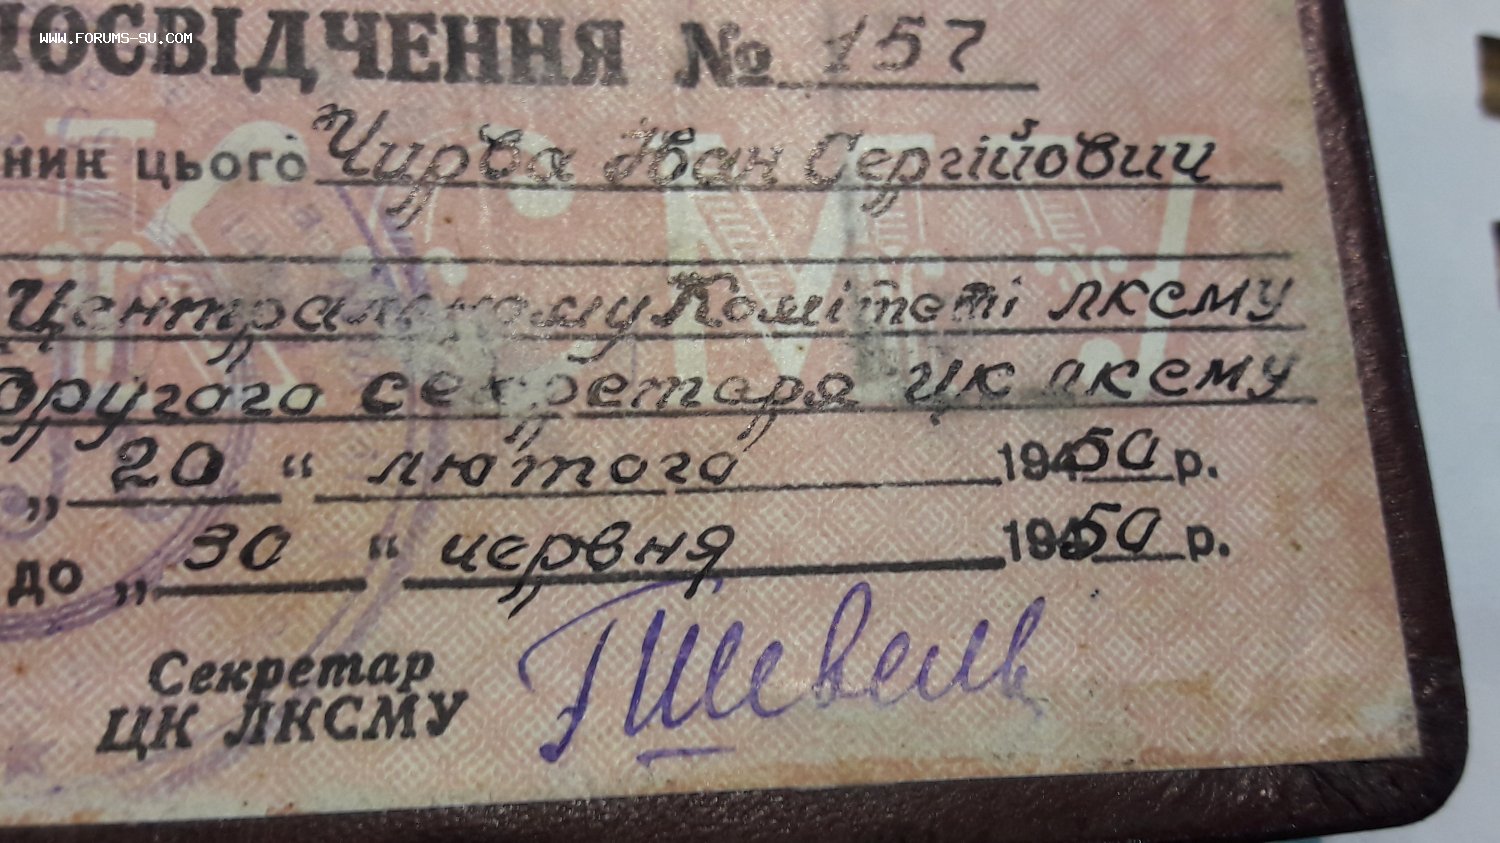 WWW.FORUMS-SU.COM
ПОСВІДЧЕННЯ № 157
ник цього Чирва Іван Сергійович
Центральному Комітеті ЛКСМУ
другого секретаря ЦК ЛКСМУ
„ 20 “ лютого 1950 р.
до „ 30 “ червня 1950 р.
Секретар
ЦК ЛКСМУ
Г Шевель